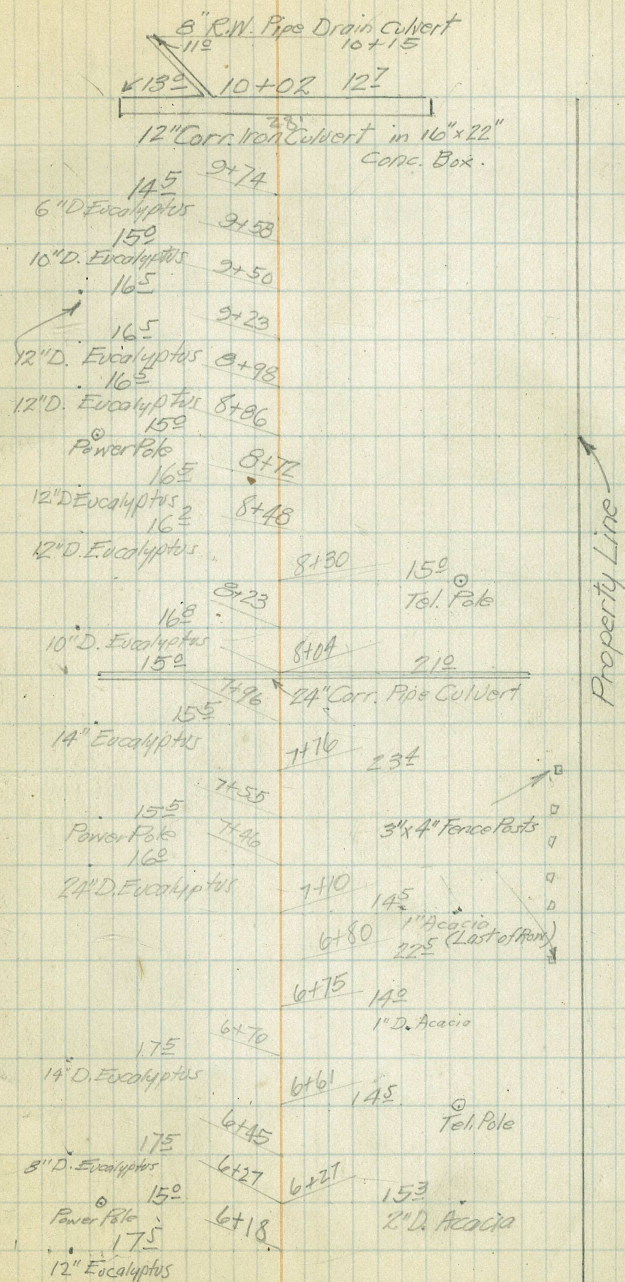 8" R.W. Pipe Drain Culvert
11⁰ 10+15
13⁰ 10+02 12⁷
28'
12" Corr. Iron Culvert in 16"x22"
Conc. Box.
9+74
14⁵
6" D Eucalyptus
9+58
15⁰
10" D. Eucalyptus
9+50
16⁵
9+23
16⁵
12" D. Eucalyptus 8+98
16⁵
12" D. Eucalyptus 8+86
15⁰
Power Pole
8+72
16⁵
12" D Eucalyptus
8+48
16²
12" D. Eucalyptus
8+30 15⁰
Tel. Pole
8+23
16⁸
10" D. Eucalyptus
15⁰ 8+04 21⁰
7+96 24" Corr. Pipe Culvert
15⁵
14" Eucalyptus
7+76 23⁴
7+55
15⁵
Power Pole 7+46
3"x4" Fence Posts
16⁰
24" D. Eucalyptus
7+10 14⁵
1" Acacia
6+80 22⁵ (Last of Row)
6+75 14⁰
1" D. Acacia
6+70
17⁵
14" D. Eucalyptus
6+61 14⁵
Tel. Pole
6+45
17⁵
8" D. Eucalyptus
6+27 6+27
15⁰ 15³
Power Pole 2" D. Acacia
6+18
17⁵
12" Eucalyptus
Property Line